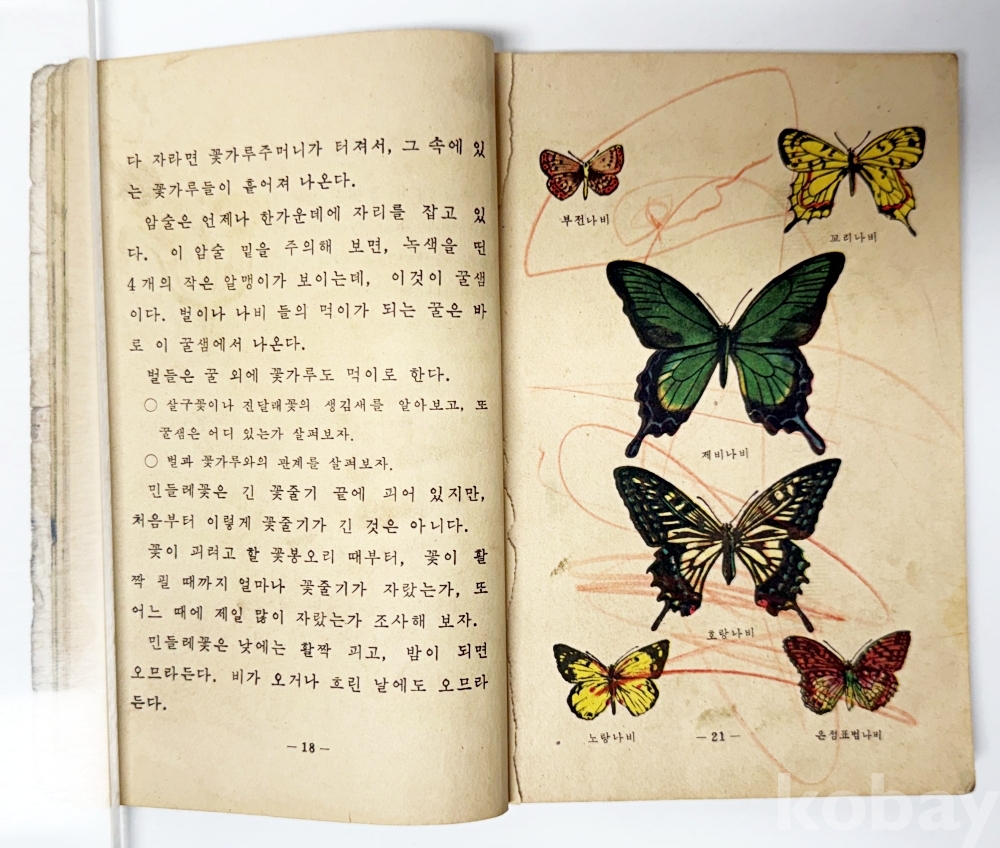 다 자라면 꽃가루주머니가 터져서, 그 속에 있
는 꽃가루들이 흩어져 나온다.
암술은 언제나 한가운데에 자리를 잡고 있
다. 이 암술 밑을 주의해 보면, 녹색을 띤
4개의 작은 알맹이가 보이는데, 이것이 꿀샘
이다. 벌이나 나비 들의 먹이가 되는 꿀은 바
로 이 꿀샘에서 나온다.
벌들은 꿀 외에 꽃가루도 먹이로 한다.
○ 살구꽃이나 진달래꽃의 생김새를 알아보고, 또
꿀샘은 어디 있는가 살펴보자.
○ 벌과 꽃가루와의 관계를 살펴보자.
민들레꽃은 긴 꽃줄기 끝에 피어 있지만,
처음부터 이렇게 꽃줄기가 긴 것은 아니다.
꽃이 피려고 할 꽃봉오리 때부터, 꽃이 활
짝 필 때까지 얼마나 꽃줄기가 자랐는가, 또
어느 때에 제일 많이 자랐는가 조사해 보자.
민들레꽃은 낮에는 활짝 피고, 밤이 되면
오므라든다. 비가 오거나 흐린 날에도 오므라
든다.
— 18 —
부전나비
꼬리나비
제비나비
호랑나비
노랑나비
은점표범나비
— 21 —
kobay